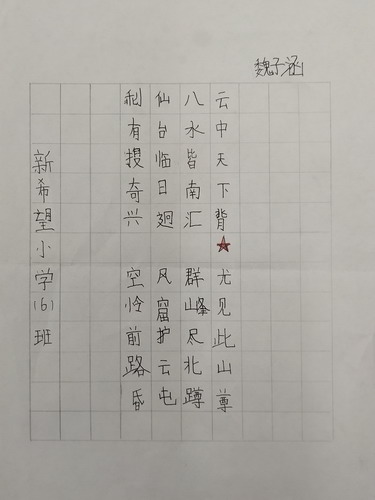 魏子涵
云中天下背★尤见此山尊
八水皆南汇 群峰尽北蹲
仙台临日廻 风窟护云屯
剩有搜奇兴 空怜前路昏
新希望小学(6)班